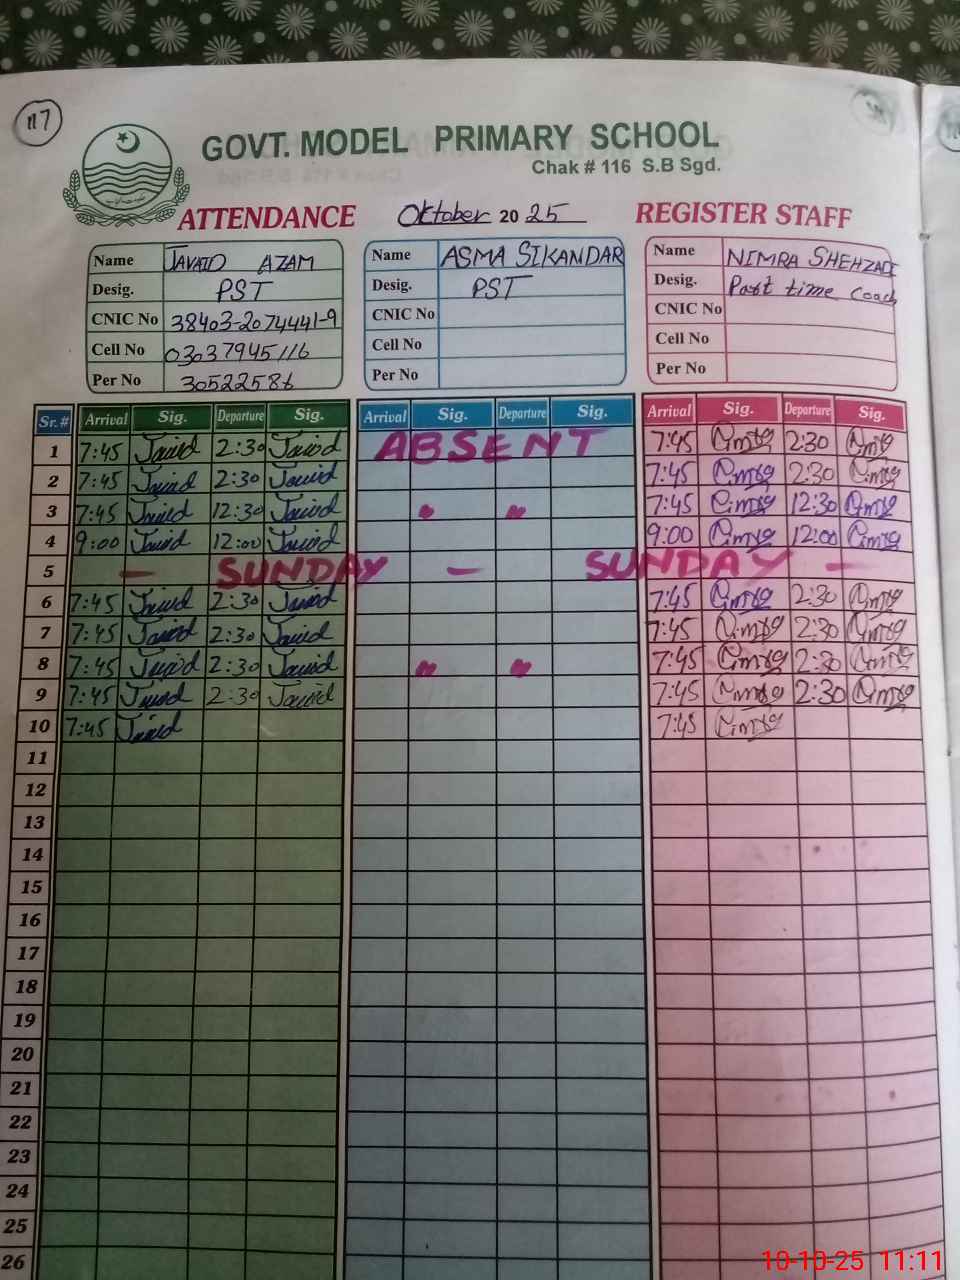 117
GOVT. MODEL PRIMARY SCHOOL
Chak # 116 S.B Sgd.
ATTENDANCE Oktober 20 25 REGISTER STAFF
Name JAVAID AZAM Name ASMA SIKANDAR Name NIMRA SHEHZADI
Desig. PST Desig. PST Desig. Part time coach
CNIC No 38403-2074441-9 CNIC No CNIC No
Cell No 03037945116 Cell No Cell No
Per No 30522586 Per No Per No
Sr. # Arrival Sig. Departure Sig. Arrival Sig. Departure Sig. Arrival Sig. Departure Sig.
1 7:45 Javid 2:30 Javid ABSENT 7:45 2:30
2 7:45 Javid 2:30 Javid 7:45 2:30
3 7:45 Javid 12:30 Javid " " 7:45 12:30
4 9:00 Javid 12:00 Javid 9:00 12:00
5 — SUNDAY — SUNDAY —
6 7:45 Javid 2:30 Javid 7:45 2:30
7 7:45 Javid 2:30 Javid 7:45 2:30
8 7:45 Javid 2:30 Javid " " 7:45 2:30
9 7:45 Javid 2:30 Javid 7:45 2:30
10 7:45 Javid 7:45
11
12
13
14
15
16
17
18
19
20
21
22
23
24
25
26
10-10-25 11:11